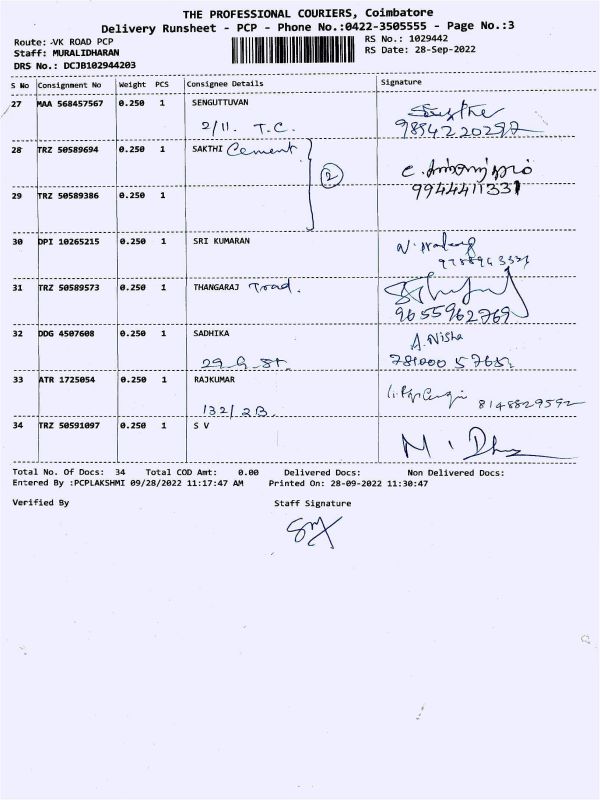 THE PROFESSIONAL COURIERS, Coimbatore
Delivery Runsheet - PCP - Phone No.:0422-3505555 - Page No.:3
Route: -VK ROAD PCP
RS No.: 1029442
Staff: MURALIDHARAN
RS Date: 28-Sep-2022
DRS No.: DCJB102944203
S No Consignment No Weight PCS Consignee Details Signature
27 MAA 568457567 0.250 1 SENGUTTUVAN
2/11. T.C.
28 TRZ 50589694 0.250 1 SAKTHI Cement
2
29 TRZ 50589386 0.250 1
9944411331
30 DPI 10265215 0.250 1 SRI KUMARAN
31 TRZ 50589573 0.250 1 THANGARAJ Trad.
9655962769
32 DDG 4507608 0.250 1 SADHIKA A. Nisha
33 ATR 1725054 0.250 1 RAJKUMAR
132/2B. 8148829592
34 TRZ 50591097 0.250 1 S V
Total No. Of Docs: 34 Total COD Amt: 0.00 Delivered Docs: Non Delivered Docs:
Entered By :PCPLAKSHMI 09/28/2022 11:17:47 AM Printed On: 28-09-2022 11:30:47
Verified By Staff Signature